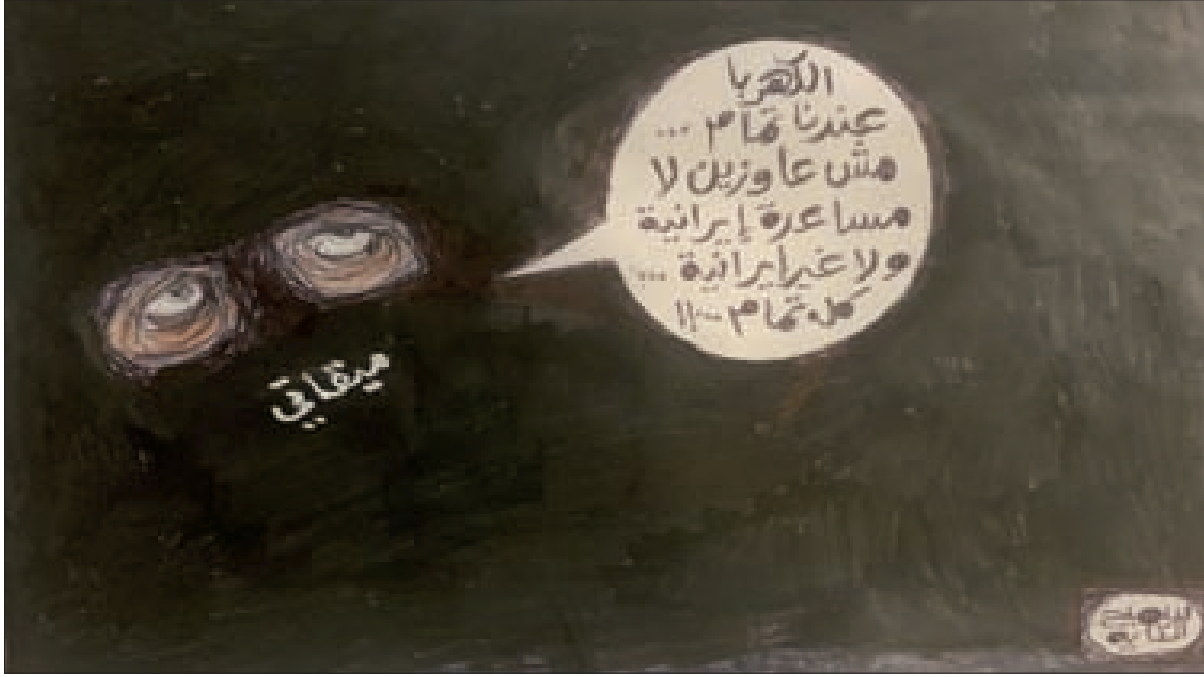 الكهربا
عندنا تمام ...
مش عاوزين لا
مساعدة إيرانية
ولا غير ايرانية ...
كله تمام ..!!
ميقاتي